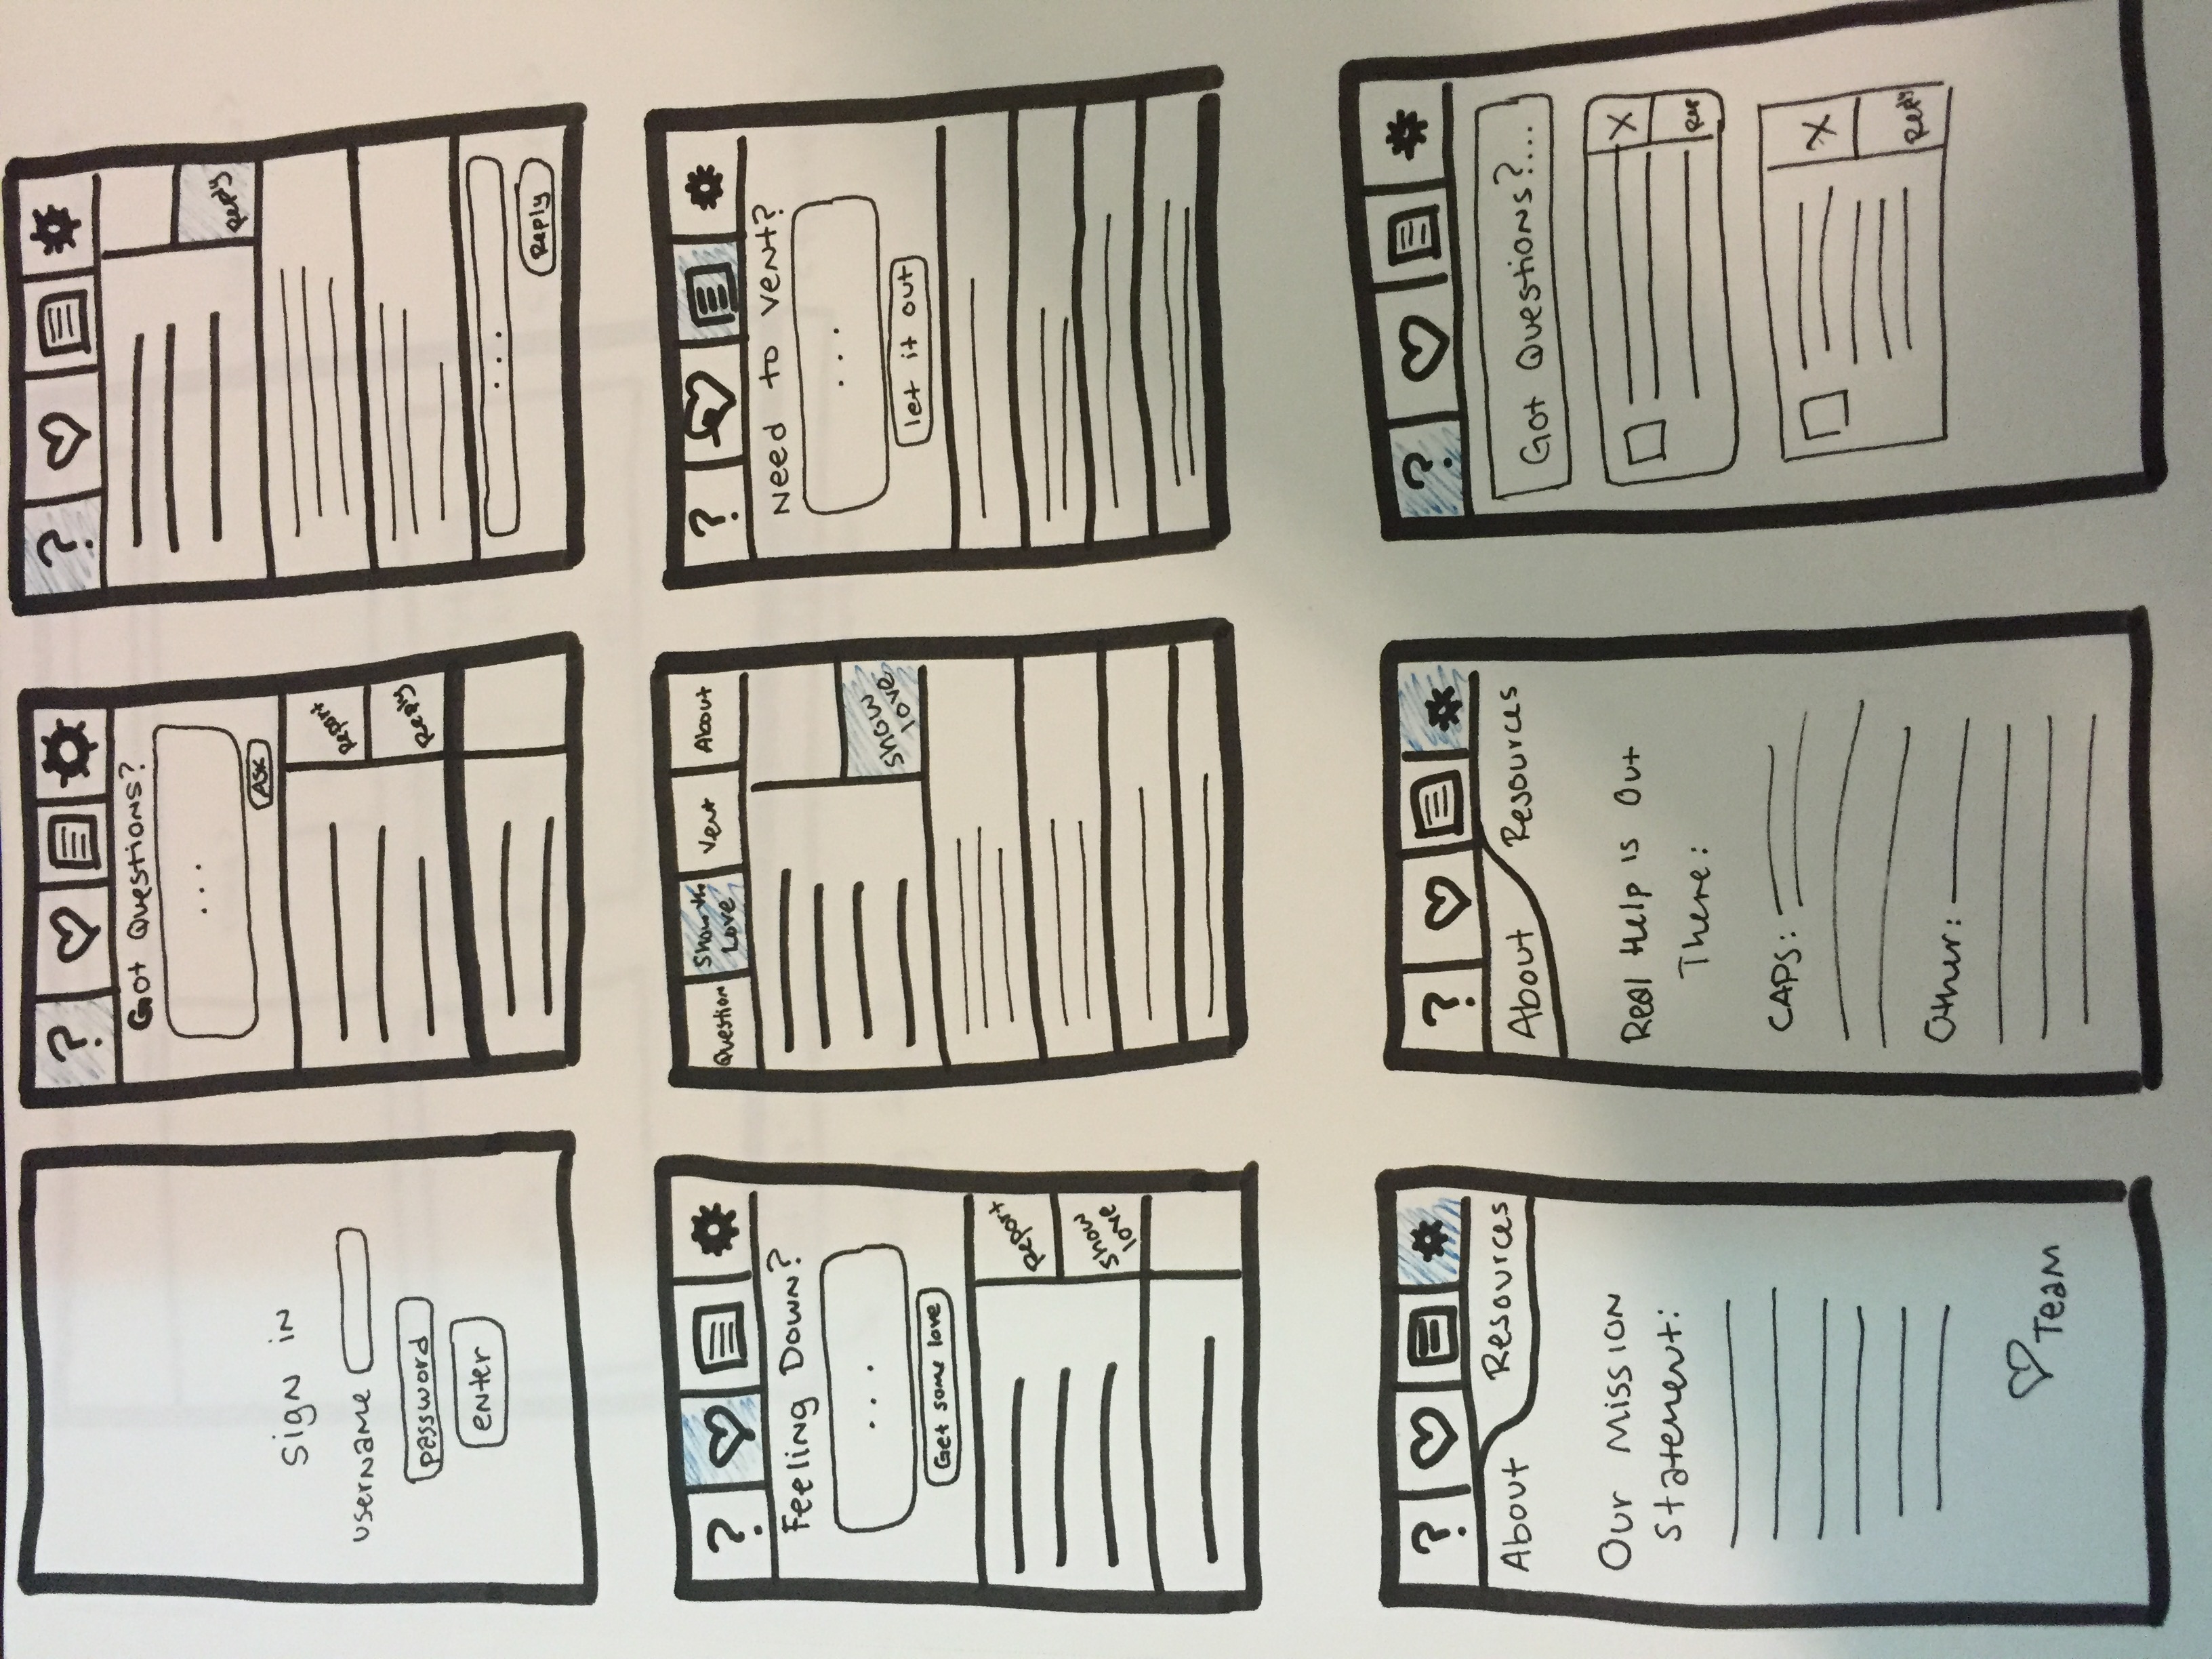 sign in
username
password
enter
?
Got Questions?
...
Ask
Report
Reply
?
Reply
...
Reply
?
Feeling Down?
...
Get some love
Report
show
love
Question
Show the
Love
Vent
About
show
love
?
Need to vent?
...
let it out
?
About
Resources
Our Mission
Statement:
Team
?
About
Resources
Real Help is Out
There:
CAPS:
Other:
?
Got Questions?...
X
Rep
X
Reply